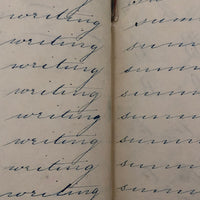 writing
writing
writing
writing
writing
writing
writing
writing
summ
summ
summ
summ
summ
summ
summ
summ